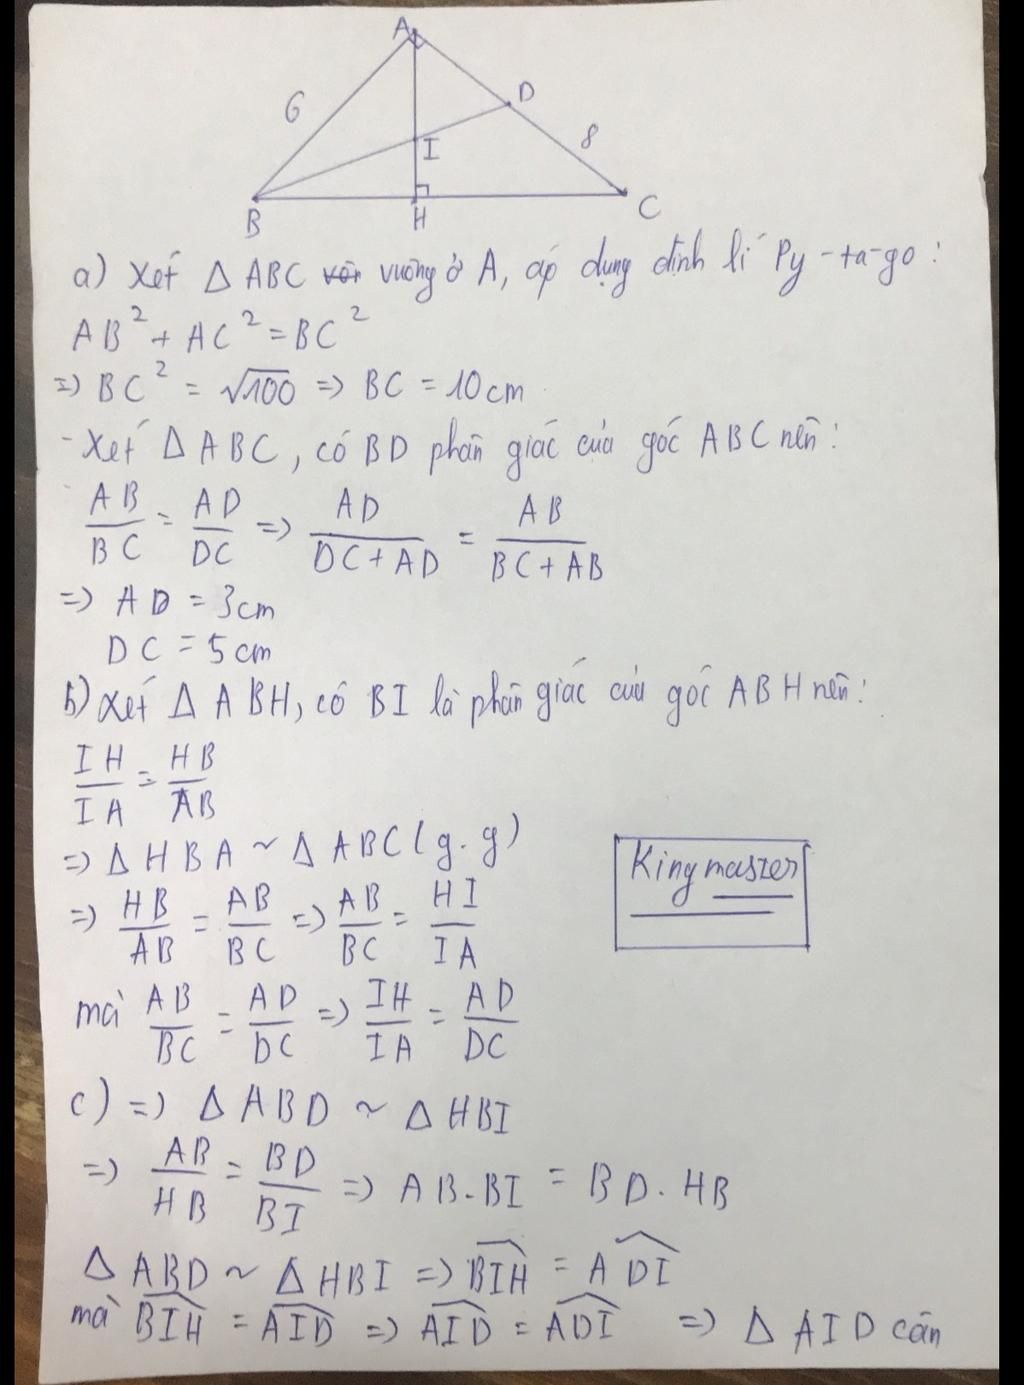 A
6
D
I
8
B
H
C
a) Xét Δ ABC vuông ở A, áp dụng định lí Py-ta-go:
AB² + AC² = BC²
=> BC² = √100 => BC = 10cm
- Xét Δ ABC, có BD phân giác của góc ABC nên:
AB/BC = AD/DC => AD/(DC + AD) = AB/(BC + AB)
=> AD = 3cm
DC = 5cm
b) Xét Δ ABH, có BI là phân giác của góc ABH nên:
IH/IA = HB/AB
=> Δ HBA ~ Δ ABC (g.g)
King master
=> HB/AB = AB/BC => AB/BC = HI/IA
mà AB/BC = AD/DC => IH/IA = AD/DC
c) => Δ ABD ~ Δ HBI
=> AB/HB = BD/BI => AB.BI = BD.HB
Δ ABD ~ Δ HBI => BIH = ADI
mà BIH = AID => AID = ADI => Δ AID cân